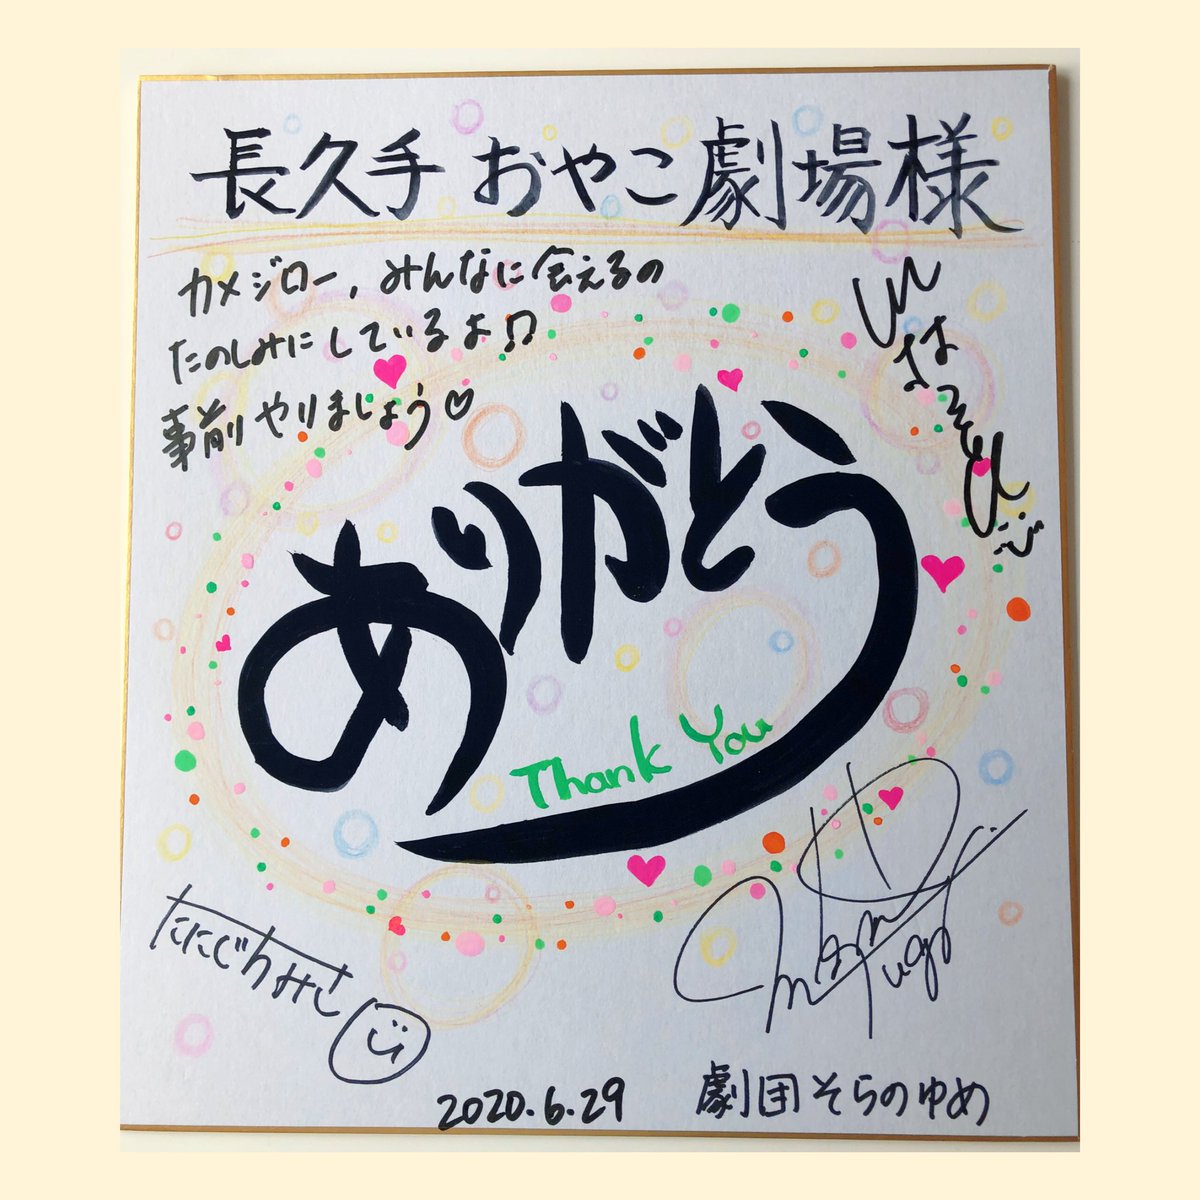 長久手 おやこ劇場様
カメジロー、みんなに会えるの
たのしみにしているよ♫
事前やりましょう♡
ありがとう
Thank You
たにぐちみさこ
2020.6.29
劇団そらのゆめ